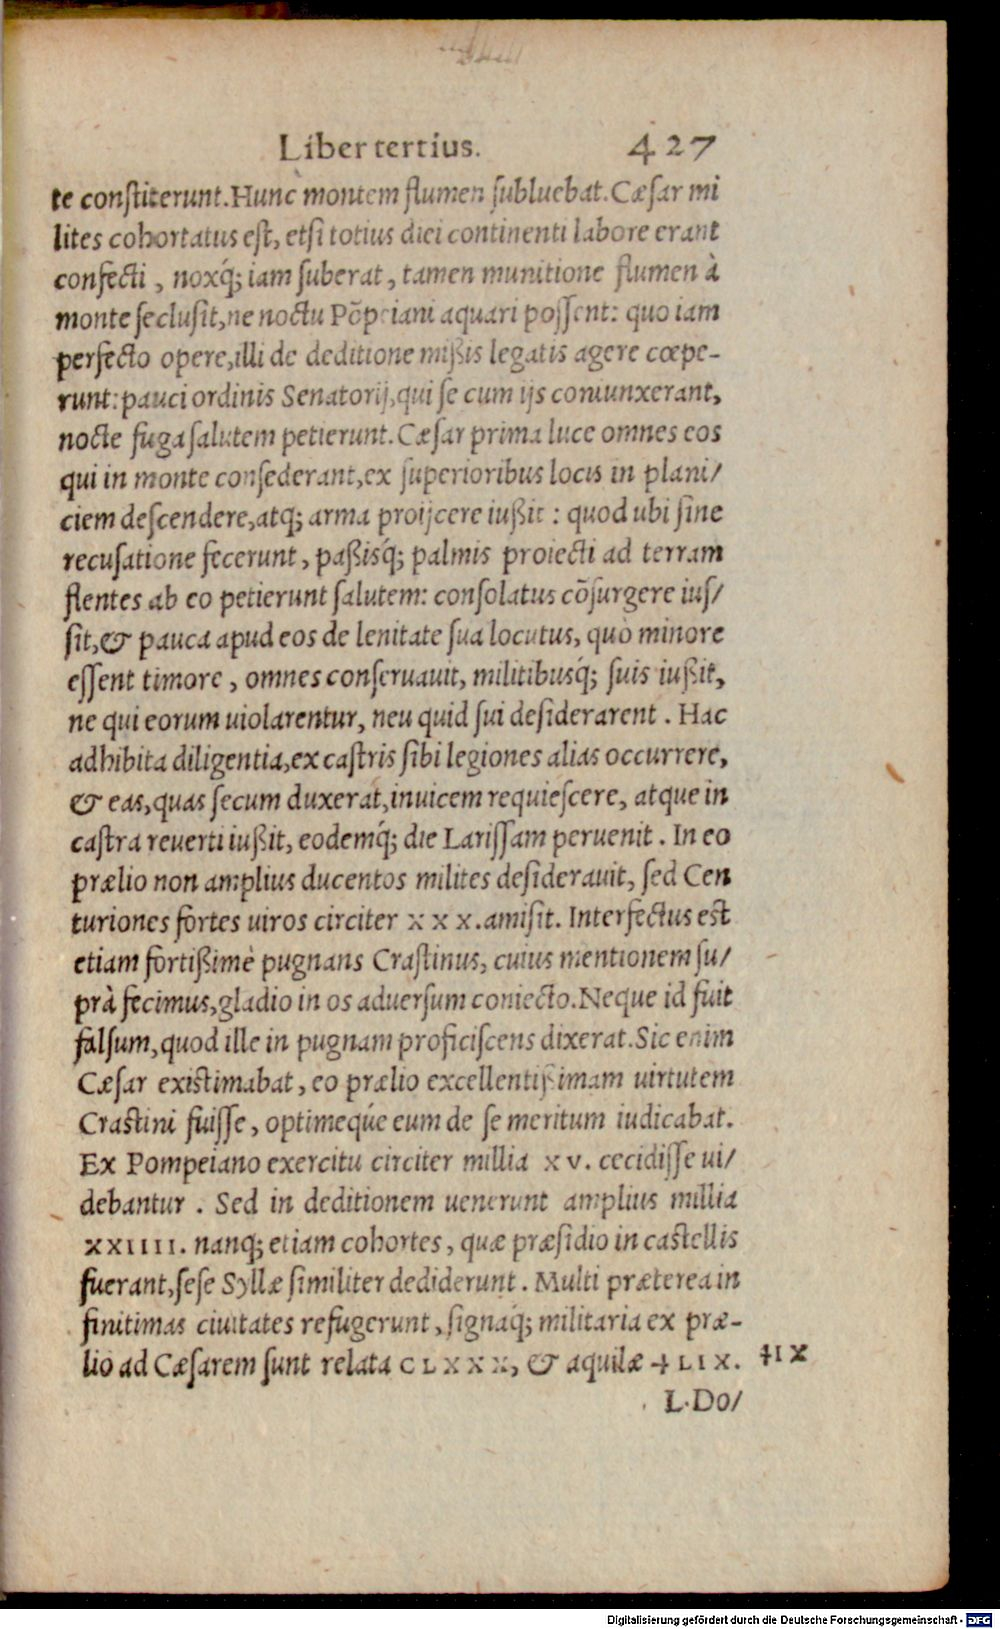 Liber tertius. 427
te constiterunt. Hunc montem flumen subluebat. Cæsar mi
lites cohortatus est, etsi totius diei continenti labore erant
confecti, noxq́; iam suberat, tamen munitione flumen à
monte seclusit, ne noctu Põpeiani aquari possent: quo iam
perfecto opere, illi de deditione mißis legatis agere cœpe-
runt: pauci ordinis Senatorij, qui se cum ijs coniunxerant,
nocte fuga salutem petierunt. Cæsar prima luce omnes eos
qui in monte consederant, ex superioribus locis in plani/
ciem descendere, atq; arma proijcere iußit: quod ubi sine
recusatione fecerunt, paßisq́; palmis proiecti ad terram
flentes ab eo petierunt salutem: consolatus cõsurgere ius/
sit, & pauca apud eos de lenitate sua locutus, quò minore
essent timore, omnes conseruauit, militibusq́; suis iußit,
ne qui eorum uiolarentur, neu quid sui desiderarent. Hac
adhibita diligentia, ex castris sibi legiones alias occurrere,
& eas, quas secum duxerat, inuicem requiescere, atque in
castra reuerti iußit, eodemq́; die Larissam peruenit. In eo
prælio non amplius ducentos milites desiderauit, sed Cen
turiones fortes uiros circiter XXX. amisit. Interfectus est
etiam fortißimè pugnans Crastinus, cuius mentionem su/
prà fecimus, gladio in os aduersum coniecto. Neque id fuit
falsum, quod ille in pugnam proficiscens dixerat. Sic enim
Cæsar existimabat, eo prælio excellentißimam uirtutem
Crastini fuisse, optimeq́ue eum de se meritum iudicabat.
Ex Pompeiano exercitu circiter millia XV. cecidisse ui/
debantur. Sed in deditionem uenerunt amplius millia
XXIIII. nanq; etiam cohortes, quæ præsidio in castellis
fuerant, sese Syllæ similiter dediderunt. Multi præterea in
finitimas ciuitates refugerunt, signaq́; militaria ex præ-
lio ad Cæsarem sunt relata CLXXX, & aquilæ + LIX. ‡IX
L. Do/
Digitalisierung gefördert durch die Deutsche Forschungsgemeinschaft - DFG